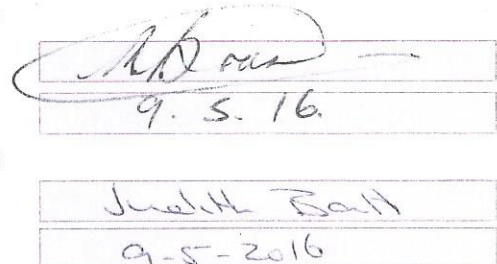 9. 5. 16.
Judith Ball
9-5-2016